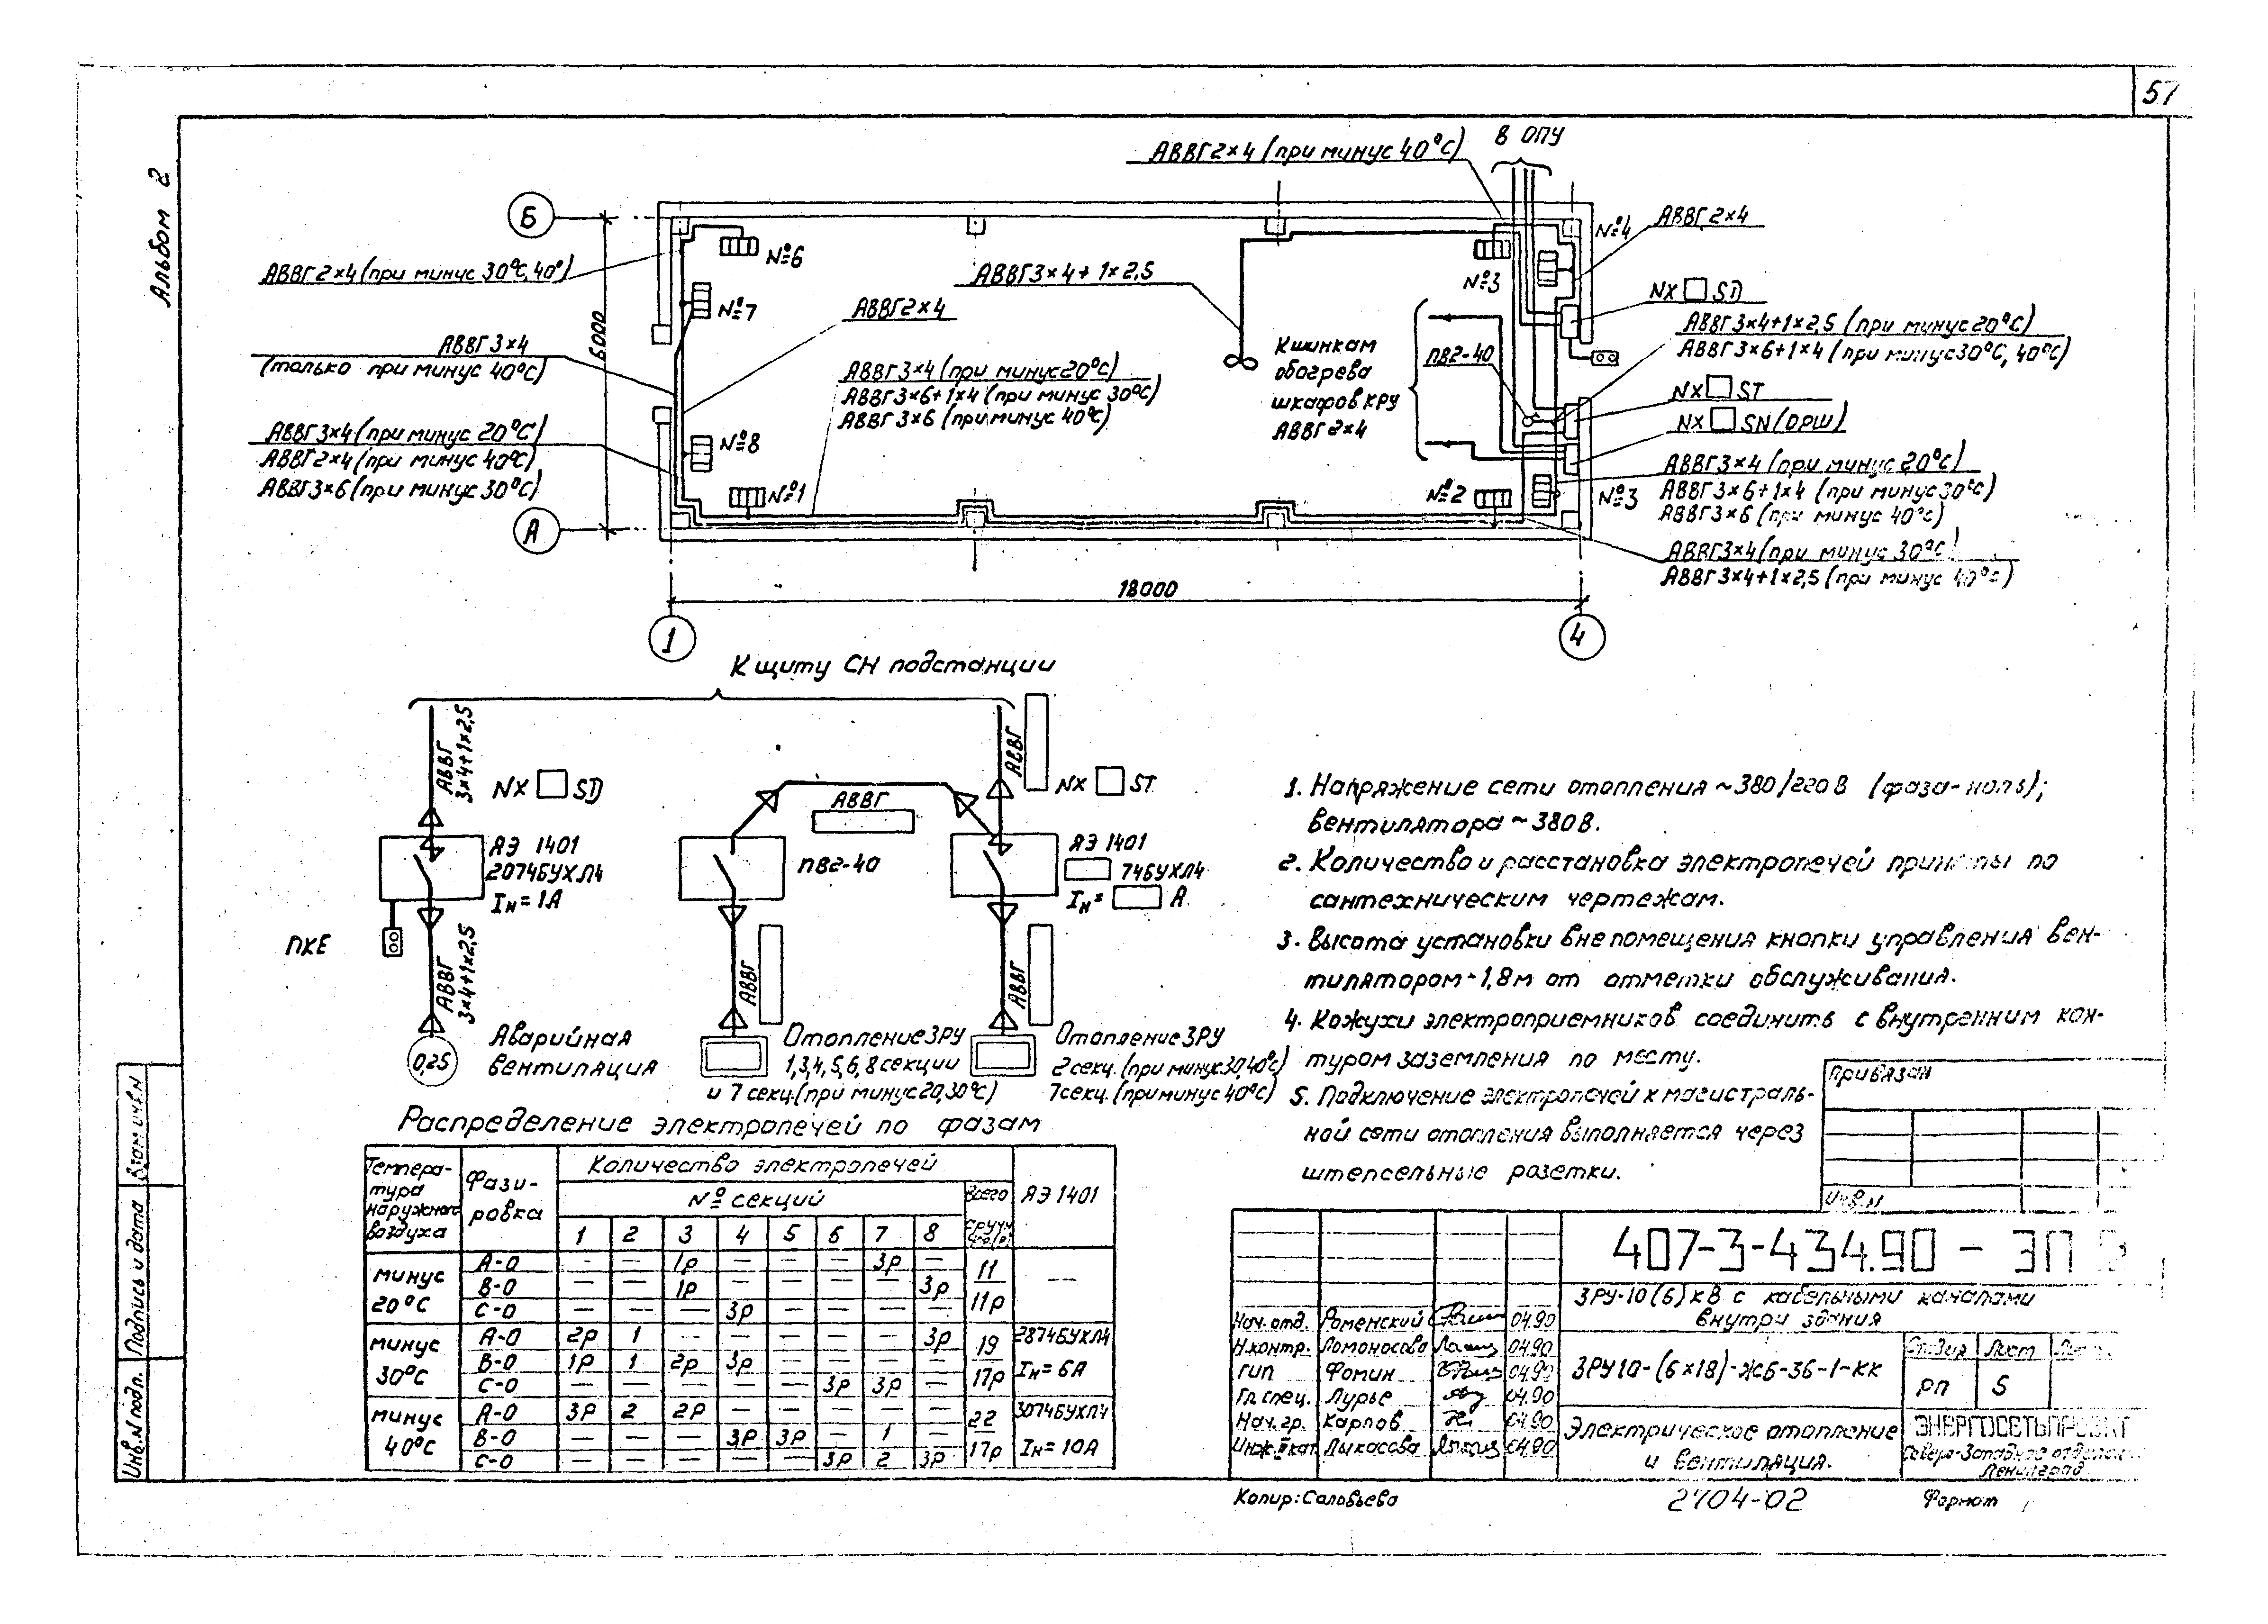 57
Альбом 2
АВВГ2×4 (при минус 40°С)
В ОПУ
Б
№4
АВВГ2×4
АВВГ2×4 (при минус 30°С, 40°)
№6
АВВГ3×4+1×2,5
№3
NX □ SD
6000
№7
АВВГ2×4
АВВГ3×4+1×2,5 (при минус 20°С)
АВВГ3×6+1×4 (при минус 30°С, 40°С)
АВВГ3×4
(только при минус 40°С)
АВВГ3×4 (при минус 20°С)
АВВГ3×6+1×4 (при минус 30°С)
АВВГ3×6 (при минус 40°С)
К шинкам
обогрева
шкафов КРУ
АВВГ2×4
ПВ2-40
NX □ ST
NX □ SN (ОРШ)
АВВГ3×4 (при минус 20°С)
АВВГ2×4 (при минус 40°С)
АВВГ3×6 (при минус 30°С)
№8
№1
№2
№3
АВВГ3×4 (при минус 20°С)
АВВГ3×6+1×4 (при минус 30°С)
АВВГ3×6 (при минус 40°С)
А
АВВГ3×4 (при минус 30°С)
АВВГ3×4+1×2,5 (при минус 40°С)
18000
1
4
К щиту СН подстанции
АВВГ
3×4+1×2,5
NX □ SD
АВВГ
АВВГ
NX □ ST
ЯЭ 1401
2074БУХЛ4
Iн=1А
ПВ2-40
ЯЭ 1401
74БУХЛ4
Iн= А
ПКЕ
АВВГ
3×4+1×2,5
АВВГ
АВВГ
0,25
Аварийная
вентиляция
Отопление ЗРУ
1,3,4,5,6,8 секции
и 7 секц.(при минус 20,30°С)
Отопление ЗРУ
2 секц. (при минус 30,40°С)
7секц. (при минус 40°С)
1. Напряжение сети отопления ~380/220В (фаза-ноль);
вентилятора ~380В.
2. Количество и расстановка электропечей приняты по
сантехническим чертежам.
3. Высота установки вне помещения кнопки управления вен-
тилятором-1,8м от отметки обслуживания.
4. Кожухи электроприемников соединить с внутренним кон-
туром заземления по месту.
5. Подключение электропечей к магистраль-
ной сети отопления выполняется через
штепсельные розетки.
Распределение электропечей по фазам
Температура наружного воздуха | Фазировка | Количество электропечей | ЯЭ 1401
№ секций | Всего
1 2 3 4 5 6 7 8
минус 20°С
А-0 — — 1р — — — 3р —
В-0 — — 1р — — — — 3р
С-0 — — — 3р — — — —
11
11р
—
минус 30°С
А-0 2р 1 — — — — — 3р
В-0 1р 1 2р 3р — — — —
С-0 — — — — — 3р 3р —
19
17р
2874БУХЛ4
Iн=6А
минус 40°С
А-0 3р 2 2р — — — — —
В-0 — — — 3р 3р — 1 —
С-0 — — — — — 3р 2 3р
22
17р
3074БУХЛ4
Iн=10А
Привязан
Инв.N
407-3-434.90 - ЭП
ЗРУ-10(6)кВ с кабельными каналами
внутри здания
Нач.отд. Роменский 04.90
Н.контр. Ломоносова 04.90
ГИП Фомин 04.90
Гл.спец. Лурье 04.90
Нач.гр. Карпов 04.90
Инж.IIкат. Лыкасова 04.90
ЗРУ10-(6×18)-ЖБ-36-1-КК
Стадия Лист
РП 5
Электрическое отопление
и вентиляция.
ЭНЕРГОСЕТЬПРОЕКТ
Северо-Западное отделение
Ленинград
Копир: Соловьева
2704-02
Формат
Взам.инв.N
Подпись и дата
Инв.N подл.